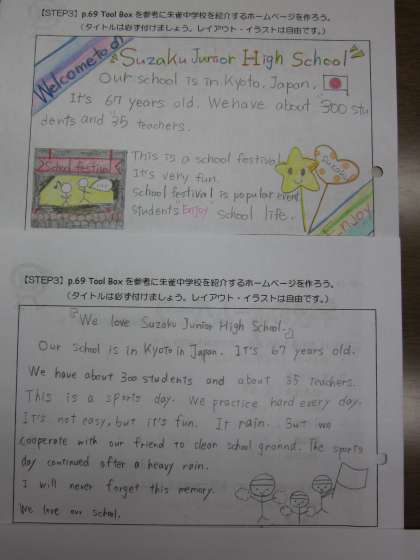 【STEP3】p.69 Tool Box を参考に朱雀中学校を紹介するホームページを作ろう。
(タイトルは必ず付けましょう。レイアウト・イラストは自由です。)
Welcome to our
Suzaku Junior High School
Our school is in Kyoto, Japan.
It's 67 years old. We have about 300 stu
dents and 35 teachers.
School festival
This is a school festival
It's very fun.
School festival is popular event
students "Enjoy" school life.
Suzaku
Enjoy
【STEP3】p.69 Tool Box を参考に朱雀中学校を紹介するホームページを作ろう。
(タイトルは必ず付けましょう。レイアウト・イラストは自由です。)
『We love Suzaku Junior High School.』
Our school is in Kyoto in Japan. It's 67 years old.
We have about 300 students and about 35 teachers.
This is a sports day. We practice hard every day.
It's not easy, but it's fun. It rain. But we
cooperate with our friend to clean school ground. The sports
day continued after a heavy rain.
I will never forget this memory.
We love our school.